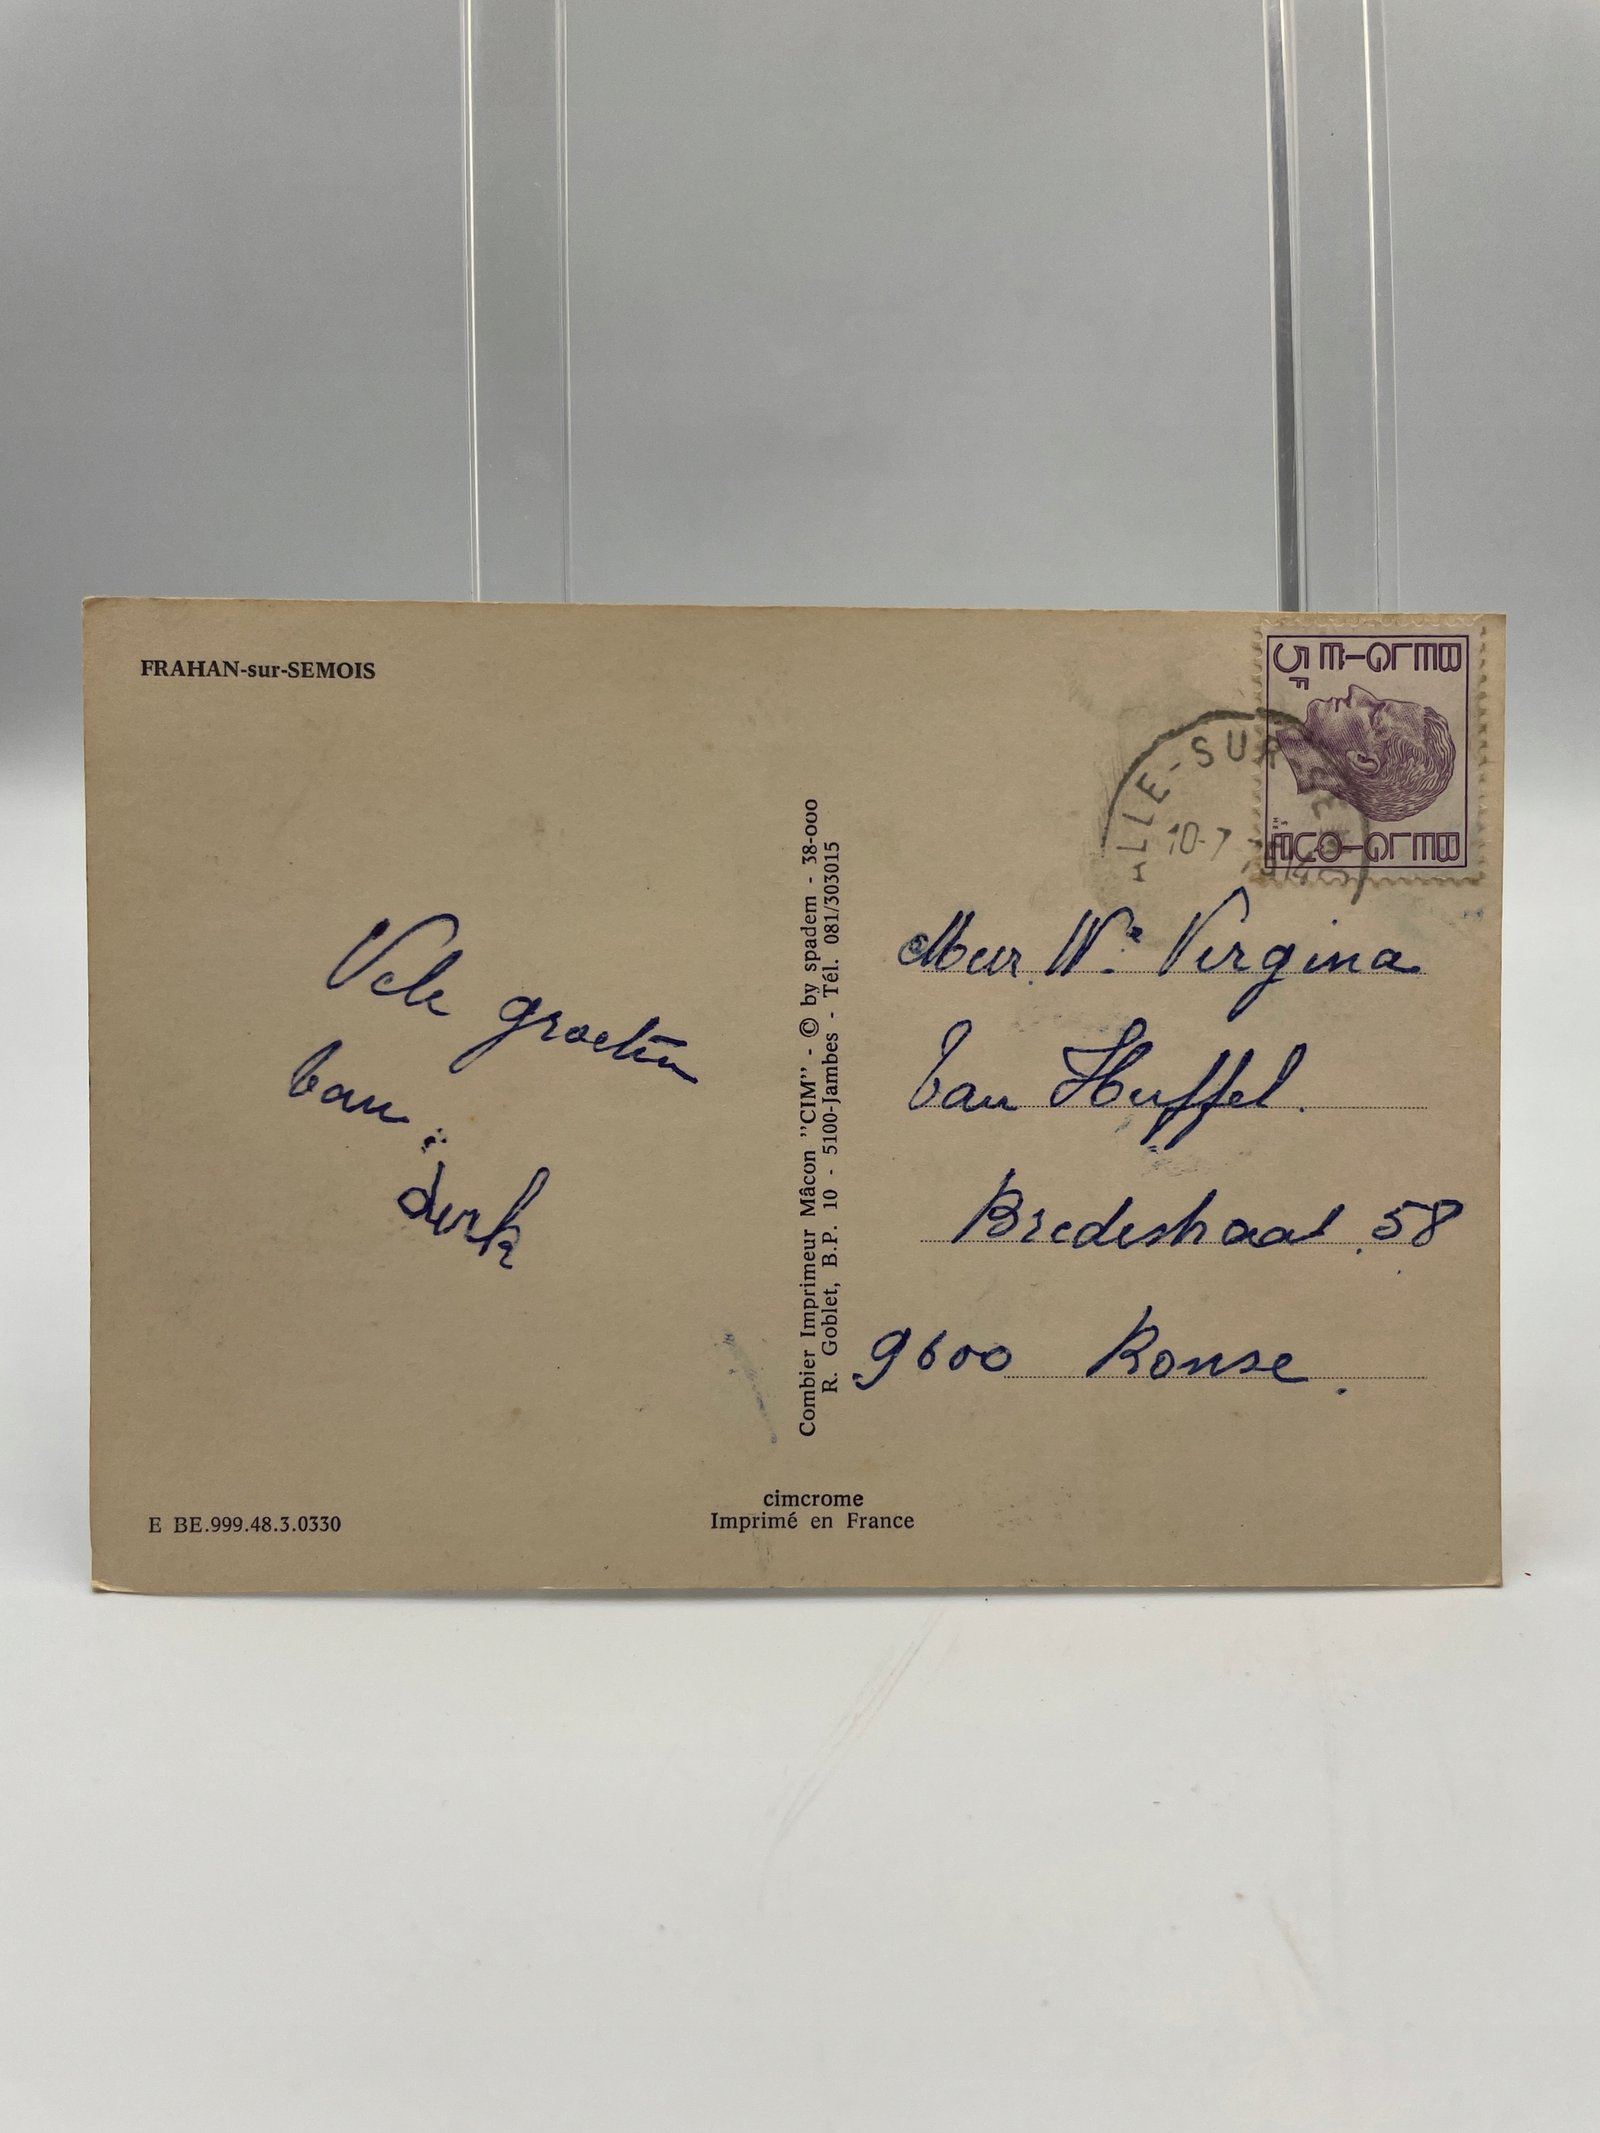 FRAHAN-sur-SEMOIS
BELGIE
5F
BELGIQUE
ALLE-SUR-SEMOIS
10-7
Vele groeten
van :
Dirk
Combier Imprimeur Mâcon "CIM" - © by spadem - 38-000
R. Goblet, B.P. 10 - 5100-Jambes - Tél. 081/303015
Mevr. We Virgina
Van Huffel.
Bredestraat 58
9600 Ronse.
cimcrome
Imprimé en France
E BE.999.48.3.0330